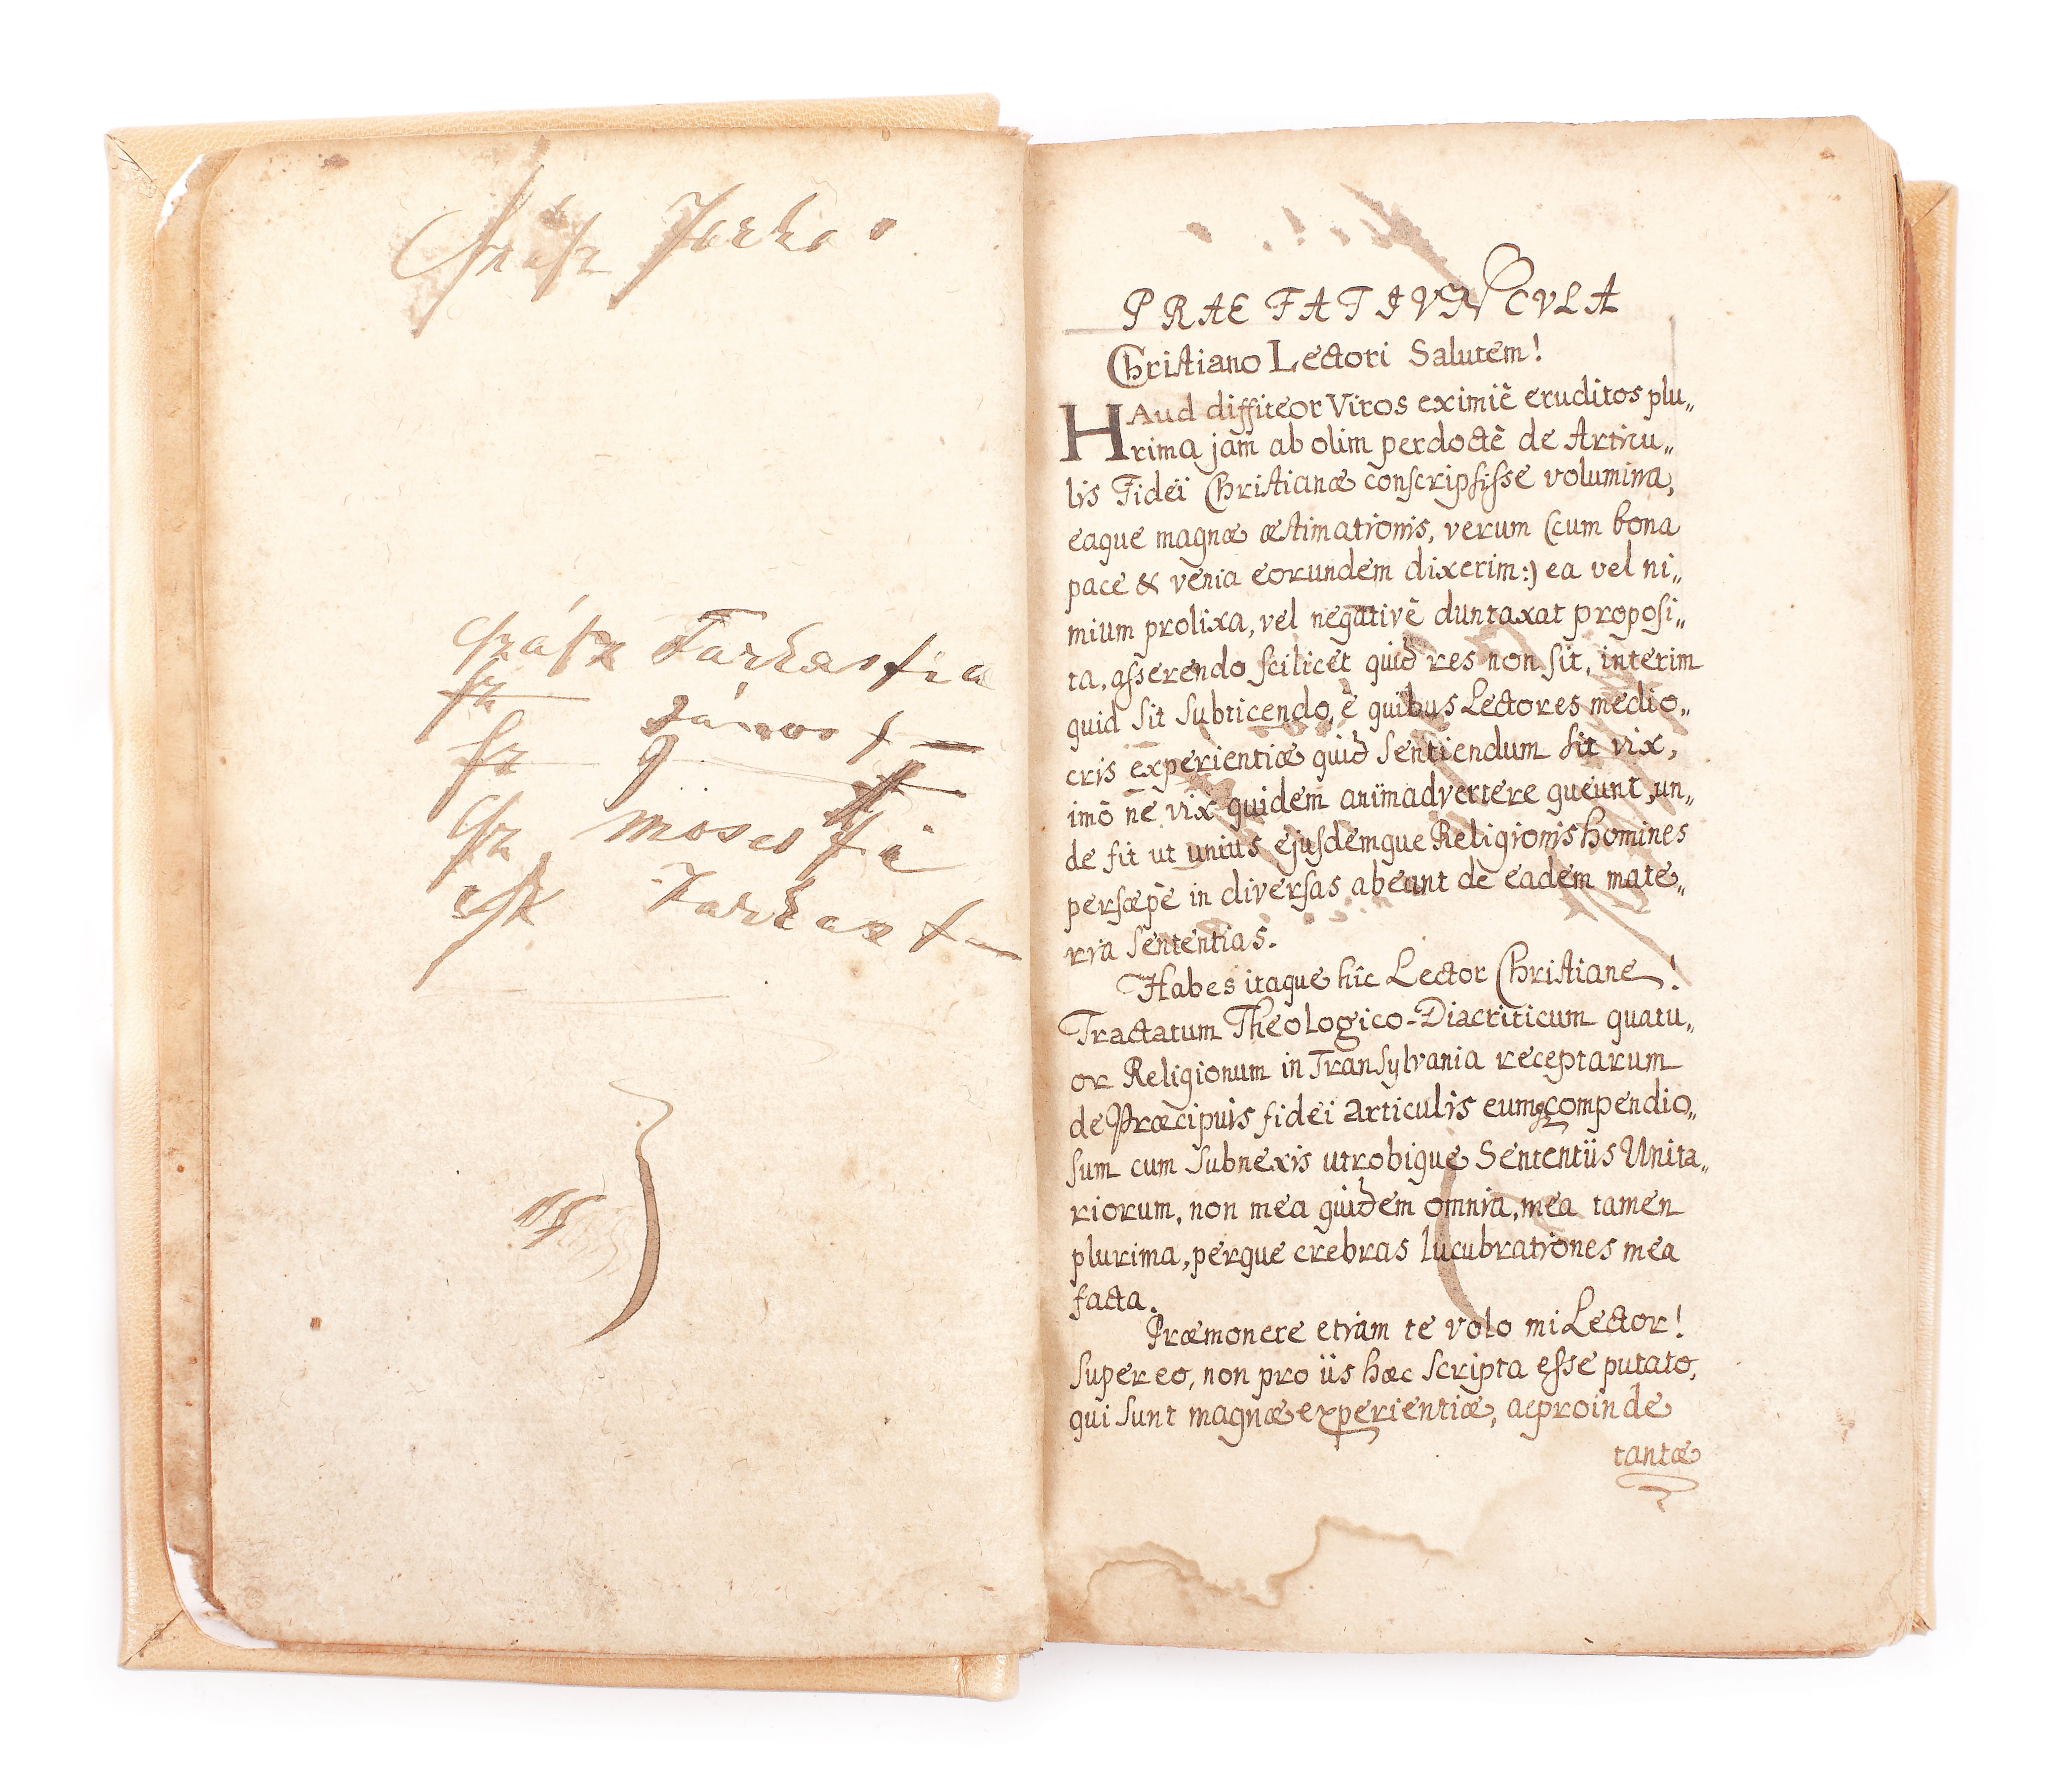 Szász Farkas fia
János f
Sz g
Sz Móses fia
Farkas f
PRAEFATIUNCULA
Christiano Lectori Salutem!
HAud diffiteor Viros eximiè eruditos plu„
rima jam ab olim perdoctè de Articu„
lis Fidei Christianæ conscripsisse volumina,
eaque magnæ æstimationis, verum (cum bona
pace & venia eorundem dixerim:) ea vel ni„
mium prolixa, vel negativè duntaxat proposi„
ta, asserendo scilicet quid res non sit, interim
quid sit subticendo, è quibus Lectores medio„
cris experientiæ quid sentiendum sit vix,
imò ne vix quidem animadvertere queunt, un„
de fit ut unius ejusdemque Religionis homines
persæpè in diversas abeant de eadem mate„
ria sententias.
Habes itaque hîc Lector Christiane!
Tractatum Theologico-Diacriticum quatu„
or Religionum in Transylvania receptarum
de Præcipuis fidei articulis eumq; compendio„
sum cum subnexis utrobique Sententiis Unita„
riorum, non mea quidem omnia, mea tamen
plurima, perque crebras lucubrationes mea
facta.
Præmonere etiam te volo mi Lector!
super eo, non pro iis hæc scripta esse putato,
qui sunt magnæ experientiæ, ac proinde
tantæ